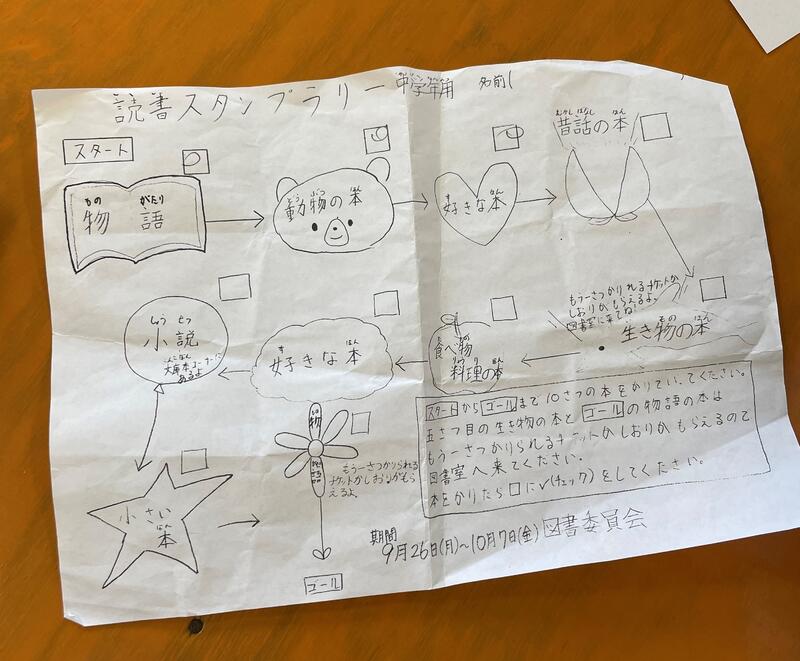 読書スタンプラリー 中学年用 名前(
スタート
物語
ものがたり
動物の本
好きな本
昔話の本
むかしばなし ほん
もう一さつかりれるチケットか
しおりがもらえるよ。
図書室に来てね!
生き物の本
食べ物
料理の本
好きな本
小説
しょうせつ
あるよ
小さい本
物語
もう一さつかりられる
チケットかしおりがもら
えるよ。
ゴール
スタートからゴールまで10さつの本をかりていってください。
五さつ目の生き物の本とゴールの物語の本は
もう一さつかりられるチケットかしおりがもらえるので
図書室へ来てください。
本をかりたら□に✓(チェック)をしてください。
期間
9月26日(月)~10月7日(金)図書委員会